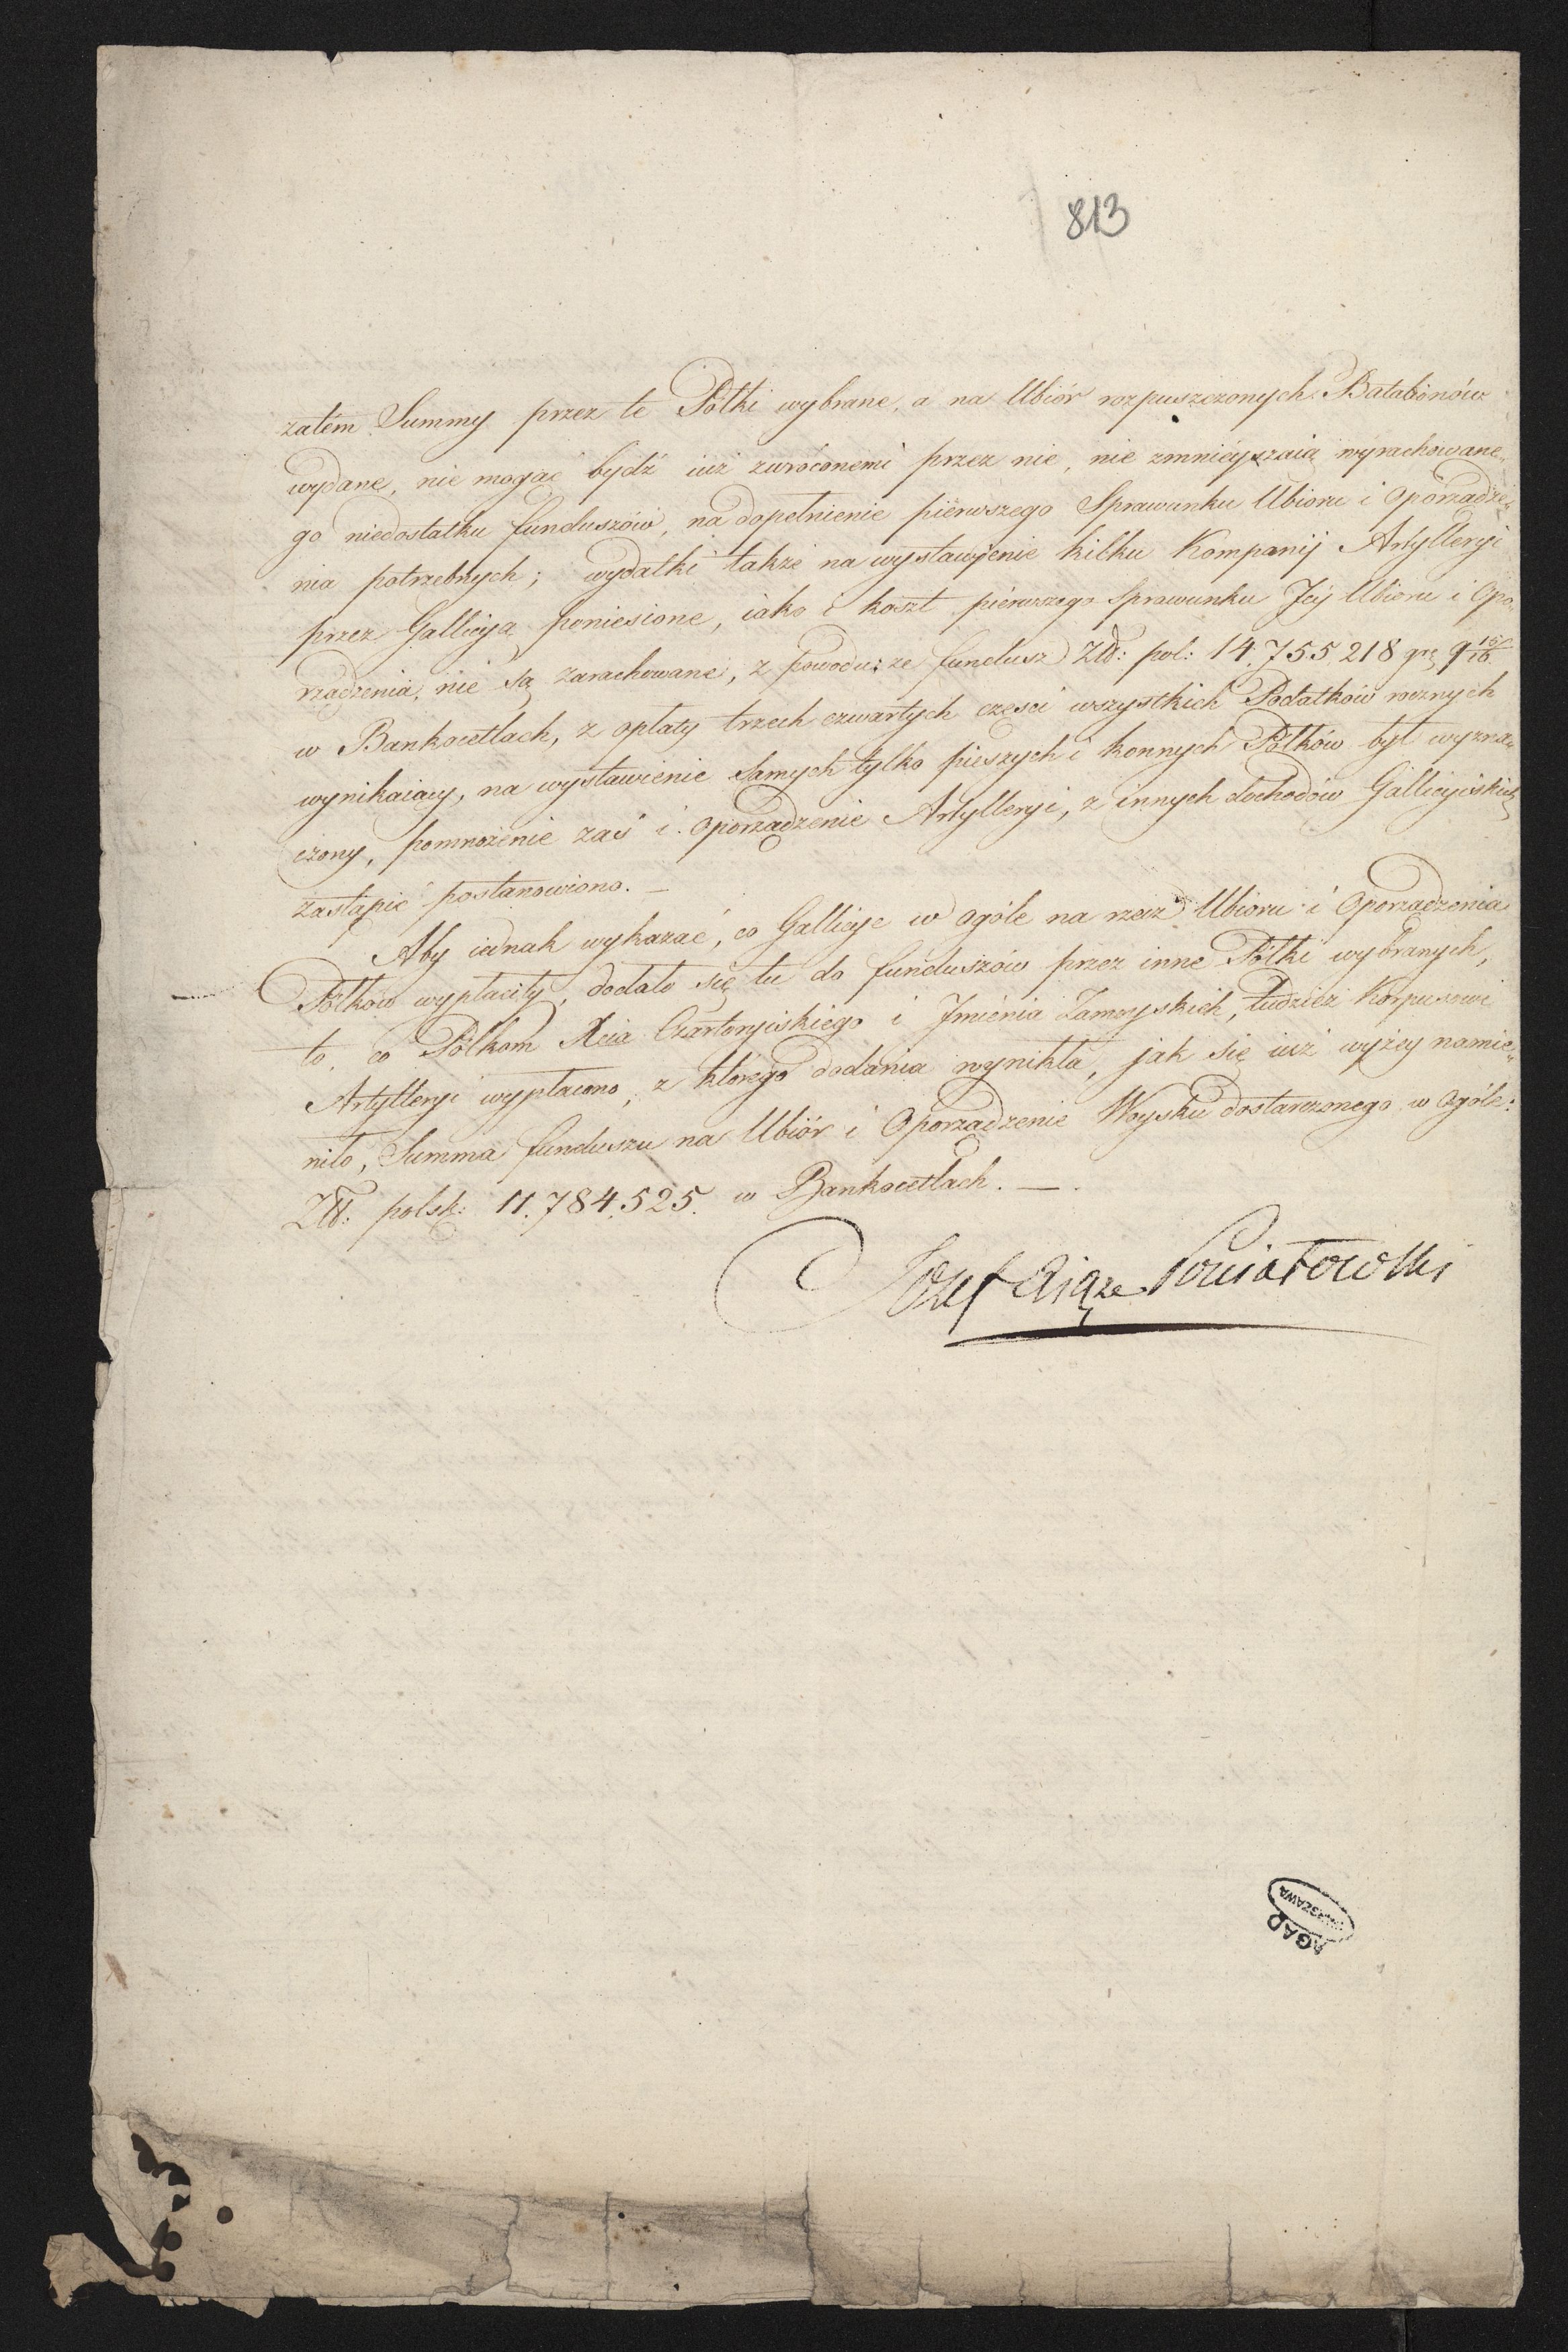 813
zatem Summy przez te Półki wybrane, a na Ubiór rozpuszczonych Batalionów
wydane, nie mogąc bydź iuż zwróconemi przez nie, nie zmnieyszaią wyrachowane„
go niedostatku funduszów, na dopełnienie pierwszego Sprawunku Ubioru i Oporządze„
nia potrzebnych; wydatki także na wystawienie kilku Kompanij Artylleryi
przez Gallicyą poniesione, iako i koszt pierwszego Sprawunku Jéy Ubioru i Opo„
rządzenia, nie są zarachowane, z powodu: że fundusz Złł: pol: 14.755.218 grę 9 15/16
w Bankocetlach, z opłaty trzech czwartych części wszystkich Podatków rocznych
wynikaiący, na wystawienie Samych tylko pieszych i konnych Półków był wyzna„
czony, pomnożenie zaś i Oporządzenie Artylleryi, z innych dochodów Gallicyiskich
zastąpić postanowiono. —
Aby iednak wykazać, co Gallicye w ogóle na rzecz Ubioru i Oporządzenia
Półków wypłaciły, dodało się tu do funduszów przez inne Półki wybranych,
to, co Półkom Xcia Czartoryiskiego i Jmienia Zamoyskich, tudzież Korpusowi
Artylleryi wypłacono, z którego dodania wynikła, jak się iuż wyżey namie„
niło, Summa funduszu na Ubiór i Oporządzenie Woysku dostarczonego w ogóle:
Złł: polsk: 11.784.525. w Bankocetlach. —.
Józef Xiąże Poniatowski
AGAD
WARSZAWA